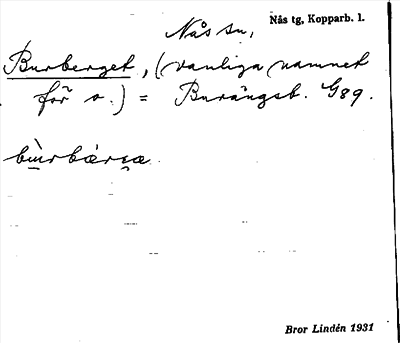 Nås sn,
Nås tg, Kopparb. l.
Burberget, (vanliga namnet
för o.) = Burängsb. G89.
Bror Lindén 1931